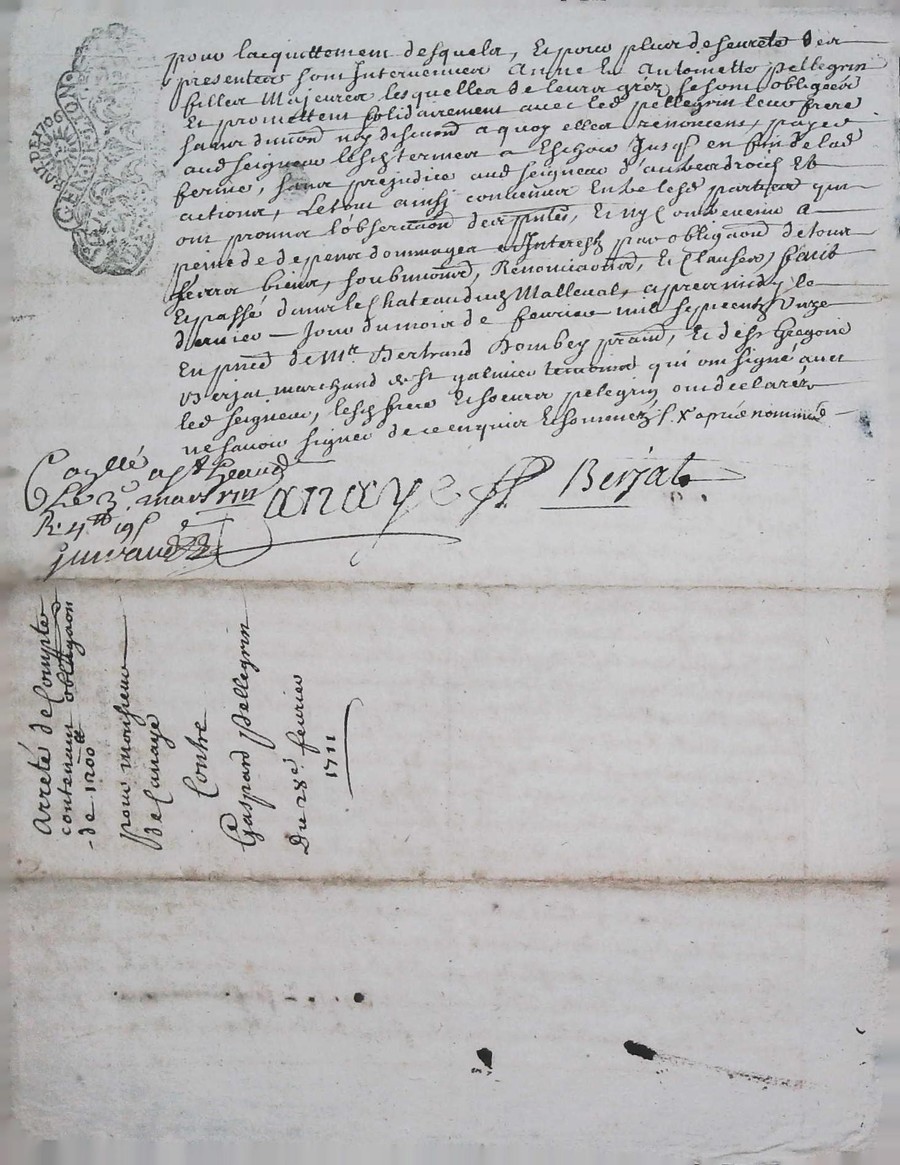 pour lacquittement desquels, Et pour plus de seureté des
presentes sont Intervenues Anne Et Antoinette pellegrin
filles Majeures lesquelles de leurs grez se sont obligées
Et promettent solidairement avec led pellegrin leur frere
sans division ny discuõn a quoy elles renoncent, payer
aud seigneur lesd termes a Eschoir Jusq en fin de lad
ferme, sans prejudice aud seigneur d'autres droits Et
actions, Le tout ainsj convenu Entre lesd parties qui
ont promis l'observaõn des pñtes, Et nyC ontrevenir a
peine de depens dommages et Interests par obligaõn de tous
biens, soubmissions, Renonciaõns, Et Clauses, fait
Et passé dans le Chateau Malleval, apres midy le
dernier jour du mois de fevrier mil septcentz Unze
En pñce de Mre Bertrand Dombey Et de sr Gregoire
Berjat marchand de st galmier temoins qui ont signé avec
led seigneur, lesd frere Et soeurs pelegrin ont declarés
ne savoir signer de ce enquis Et sommez,
Canaye Berjat
Le 3e mars
R. 4 19
Arreté de Compte
contenant obligaõn
de 1200
pour monsieur
De Canaye
Contre
Gaspard Pellegrin
Du 28e fevrier
1711